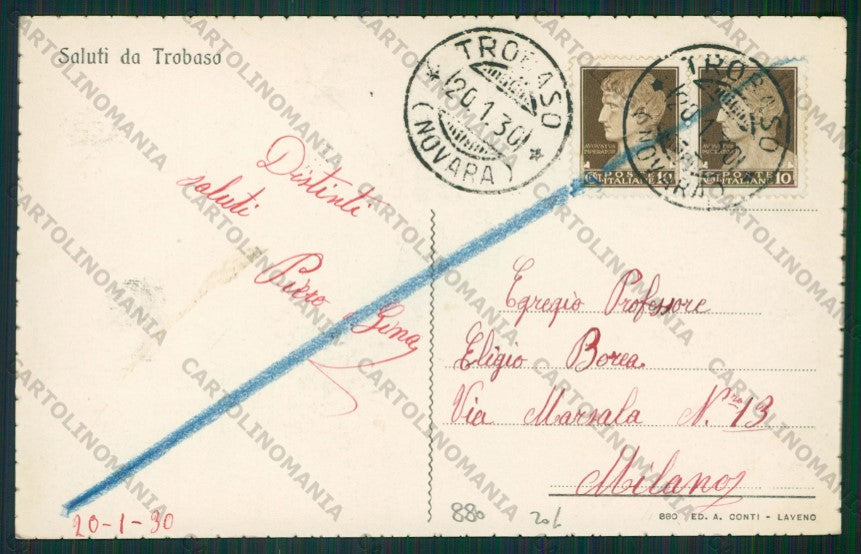 Saluti da Trobaso
TROBASO
20.1.30
(NOVARA)
TROBASO
20.1.30
(NOVARA)
AVGVSTVS
IMPERATOR
POSTE
ITALIANE 10
POSTE
ITALIANE 10
Distinti
saluti
Piero Gina
Egregio Professore
Eligio Borea
Via Marsala N.ro 13
Milano
20-1-30
880
201
880 - ED. A. CONTI - LAVENO
CARTOLINOMANIA